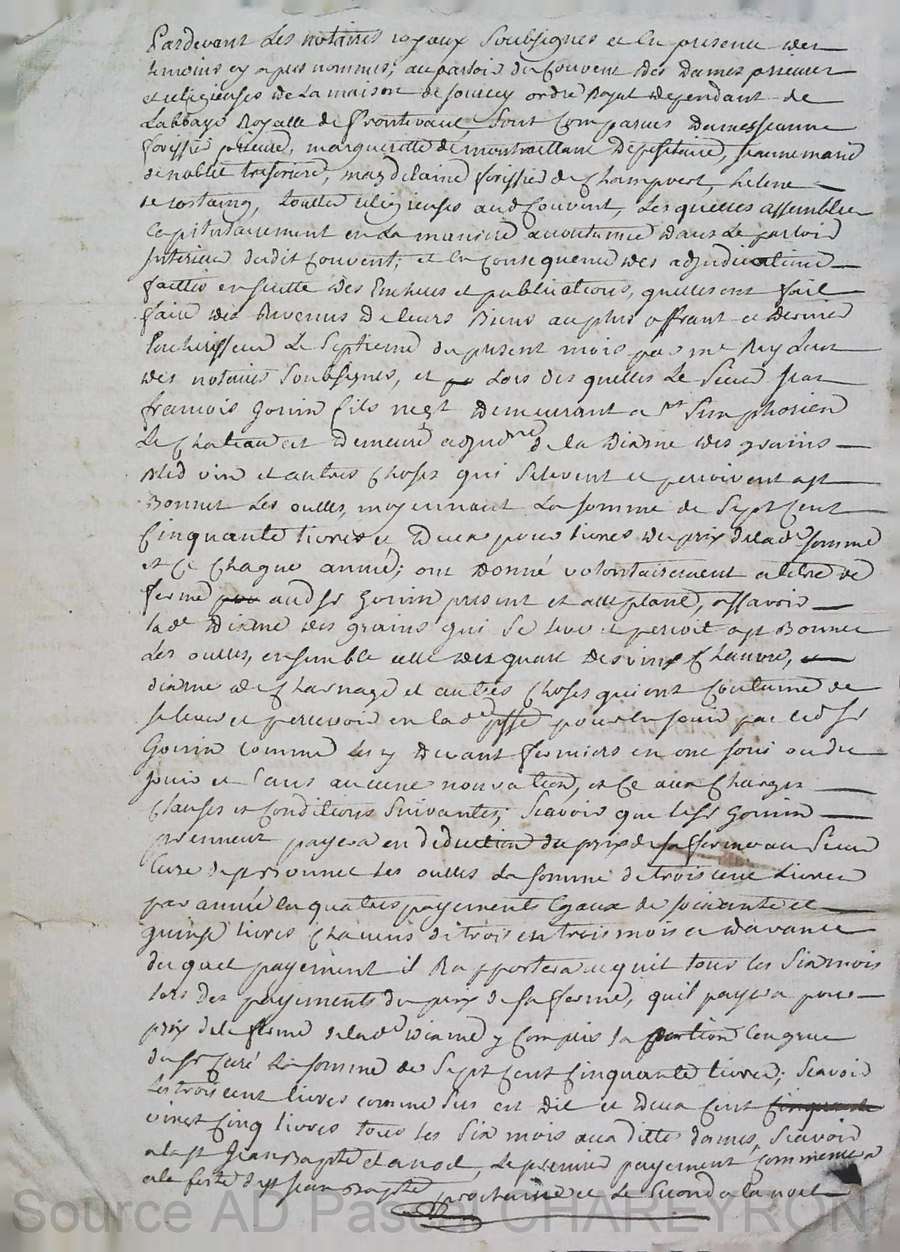 Pardevant les notaires royaux soubsignes et en presence des
temoins cy apres nommes, au parloir du Couvent des dames prieure
et religieuses de la maison de jourcey ordre Royal dependant de
Labbaye Royalle de frontevaud, sont comparues dames jeanne
forissié prieure, margueritte de montraillane depositaire, jeanne marie
denoblet tresoriere, magdelaine forissié de Champvert, helene
de rostaing, touttes religieuses aud Couvent, Lesquelles assemblees
Capitulairement en la maniere accoutumée dans le parloir
Interieur dudit Couvent; et en consequence des adjudications
faittes ensuitte des Encheres et publications, quelles ont fait
faire des Revenus de leurs Biens au plus offrant et dernier
Encherisseur Le Septieme du present mois par me Rey Lun
des notaires soubsignes, et Lors des quelles Le Sieur jean
francois gonin fils negt demeurant a st Simphorien
Le Chateau est demeuré adjudre de la diame des grains
Bled vin et autres choses qui se levent et percoivent a st
Bonnet les oulles, moyennant la somme de Sept Cent
Cinquante livres et deux pour livres du prix de lade somme
et ce chaque année; ont donné volontairement a titre de
ferme aud sr Gonin present et acceptant, assavoir
lade diame des grains qui se leve et percoit a st Bonnet
les oulles, ensemble celle des quart des vins Chanvre,
diame de Charnage et autres choses qui ont Coutume de
se lever et percevoir en lade psse pour en jouir par led sr
Gonin comme les cy devant fermiers en ont joui ou du
jouir et sans aucune nouvation, et ce aux Charges
Clauses et Conditions suivantes; scavoir que led sr gonin
prenneur payera en deduction du prix de sa ferme au Sieur
Curé de st Bonnet les oulles la somme de trois cent livres
par année en quatres payements egaux de soixante et
quinse livres chacuns de trois en trois mois et d'avance
du quel payement il Rapportera acquit tous les six mois
lors des payements du prix de sa ferme, quil payera pour
prix de la ferme de lade diame y compris la portion Congrue
du sr Curé la somme de Sept Cent Cinquante livres; Scavoir
les trois cent livres comme sus est dit et deux cent cinquante
vinct cinq livres tous les six mois aux dittes dames, Scavoir
a la st jean Baptiste et a noel, le premier payement Commencera
a la feste de st jean Baptiste prochaine et le second a la noel
Source AD Pascal CHAREYRON